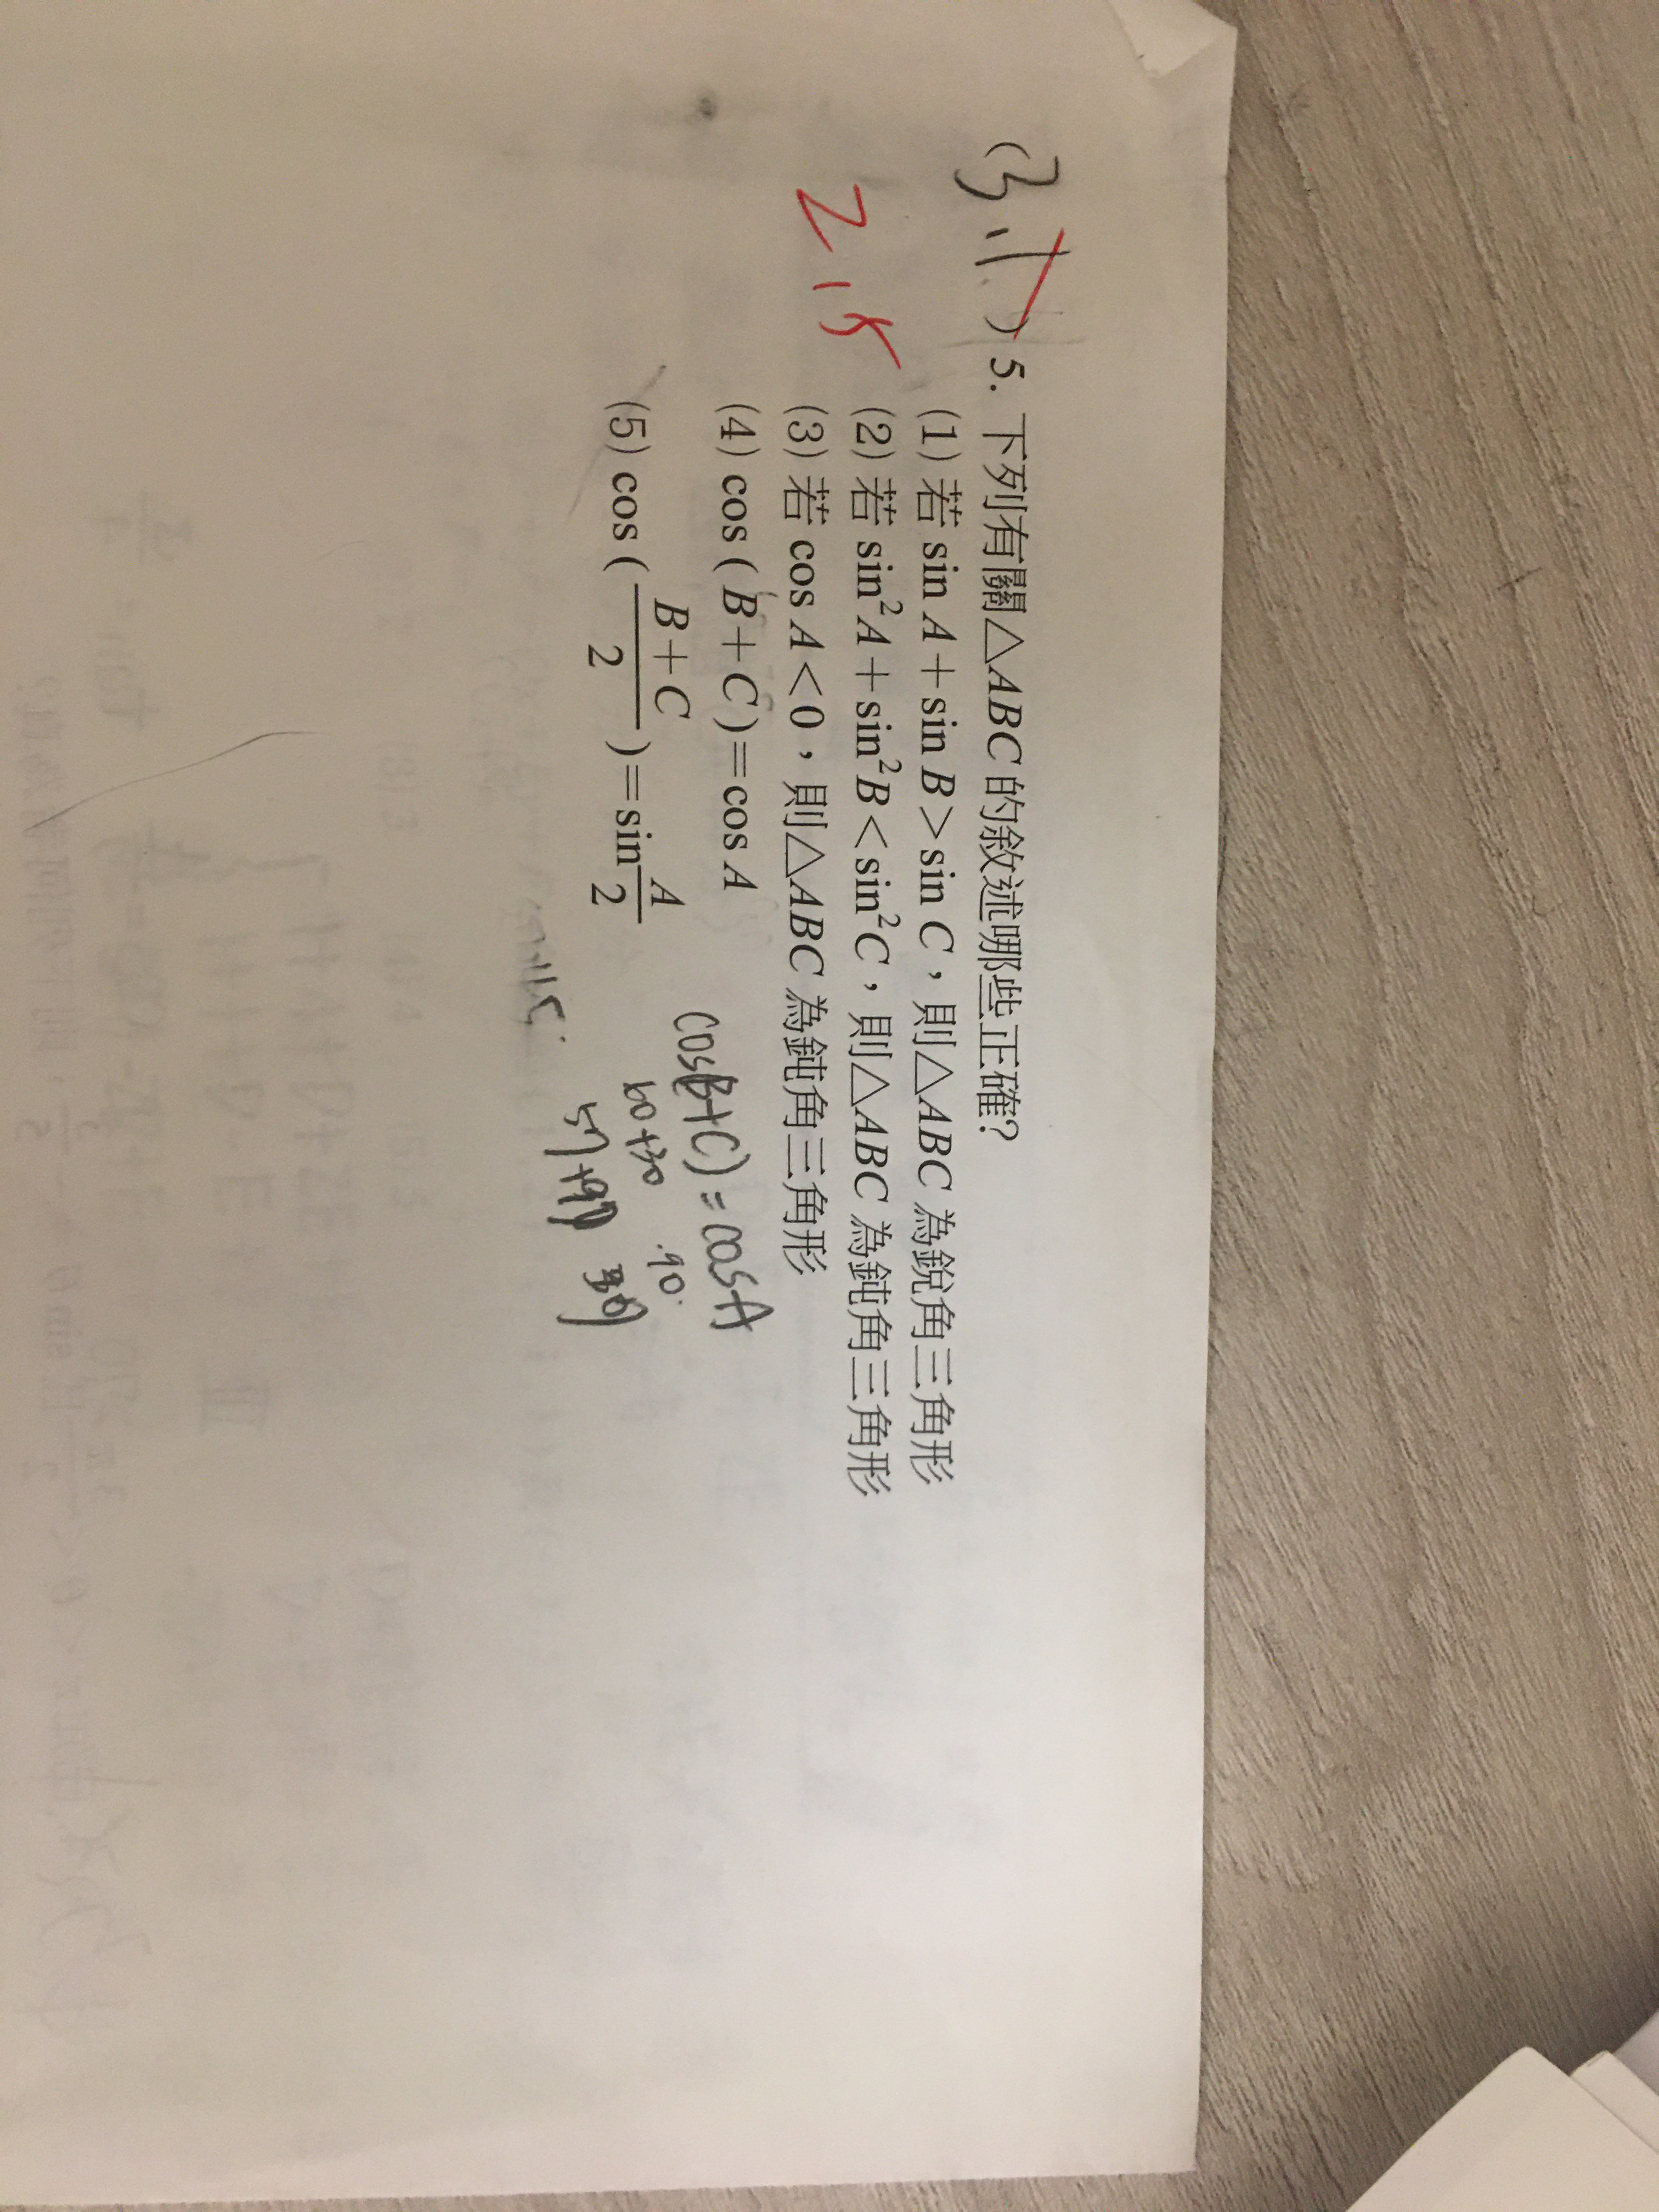 (3,1) 5. 下列有關△ABC 的敘述哪些正確?
2,5
(1) 若 sin A+sin B>sin C，則△ABC 為銳角三角形
(2) 若 sin²A+sin²B<sin²C，則△ABC 為鈍角三角形
(3) 若 cos A<0，則△ABC 為鈍角三角形
(4) cos (B+C)=cos A
(5) cos (\frac{B+C}{2})=sin\frac{A}{2}
cos(B+C) = cosA
60+30 90